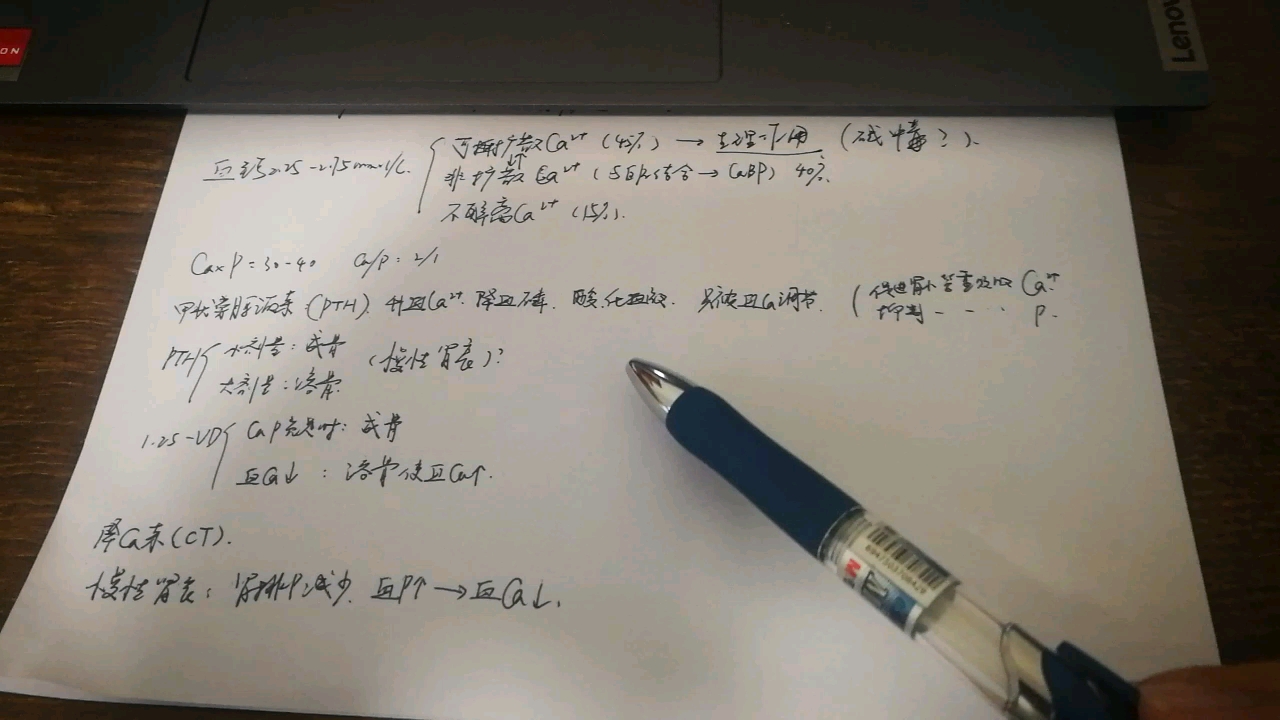 Lenov
ON
血钙2.25-2.75mmol/L.
可扩散Ca²⁺(45%)→生理作用(碱中毒?).
非扩散Ca²⁺(与白蛋结合→CaBP) 40%.
不解离Ca²⁺(15%).
Ca×P=30-40 Ca/P=2/1
甲状旁腺激素(PTH). 升血Ca²⁺. 降血磷. 酸化血液. 只被血Ca调节.
(促进肾小管重吸收Ca²⁺.
抑制- - - P.
PTH
小剂量:成骨
大剂量:溶骨
(慢性肾衰)?
1.25-VD
Ca P充足时:成骨
血Ca↓:溶骨使血Ca↑.
降Ca素(CT).
慢性肾衰:肾排P减少. 血P↑→血Ca↓.